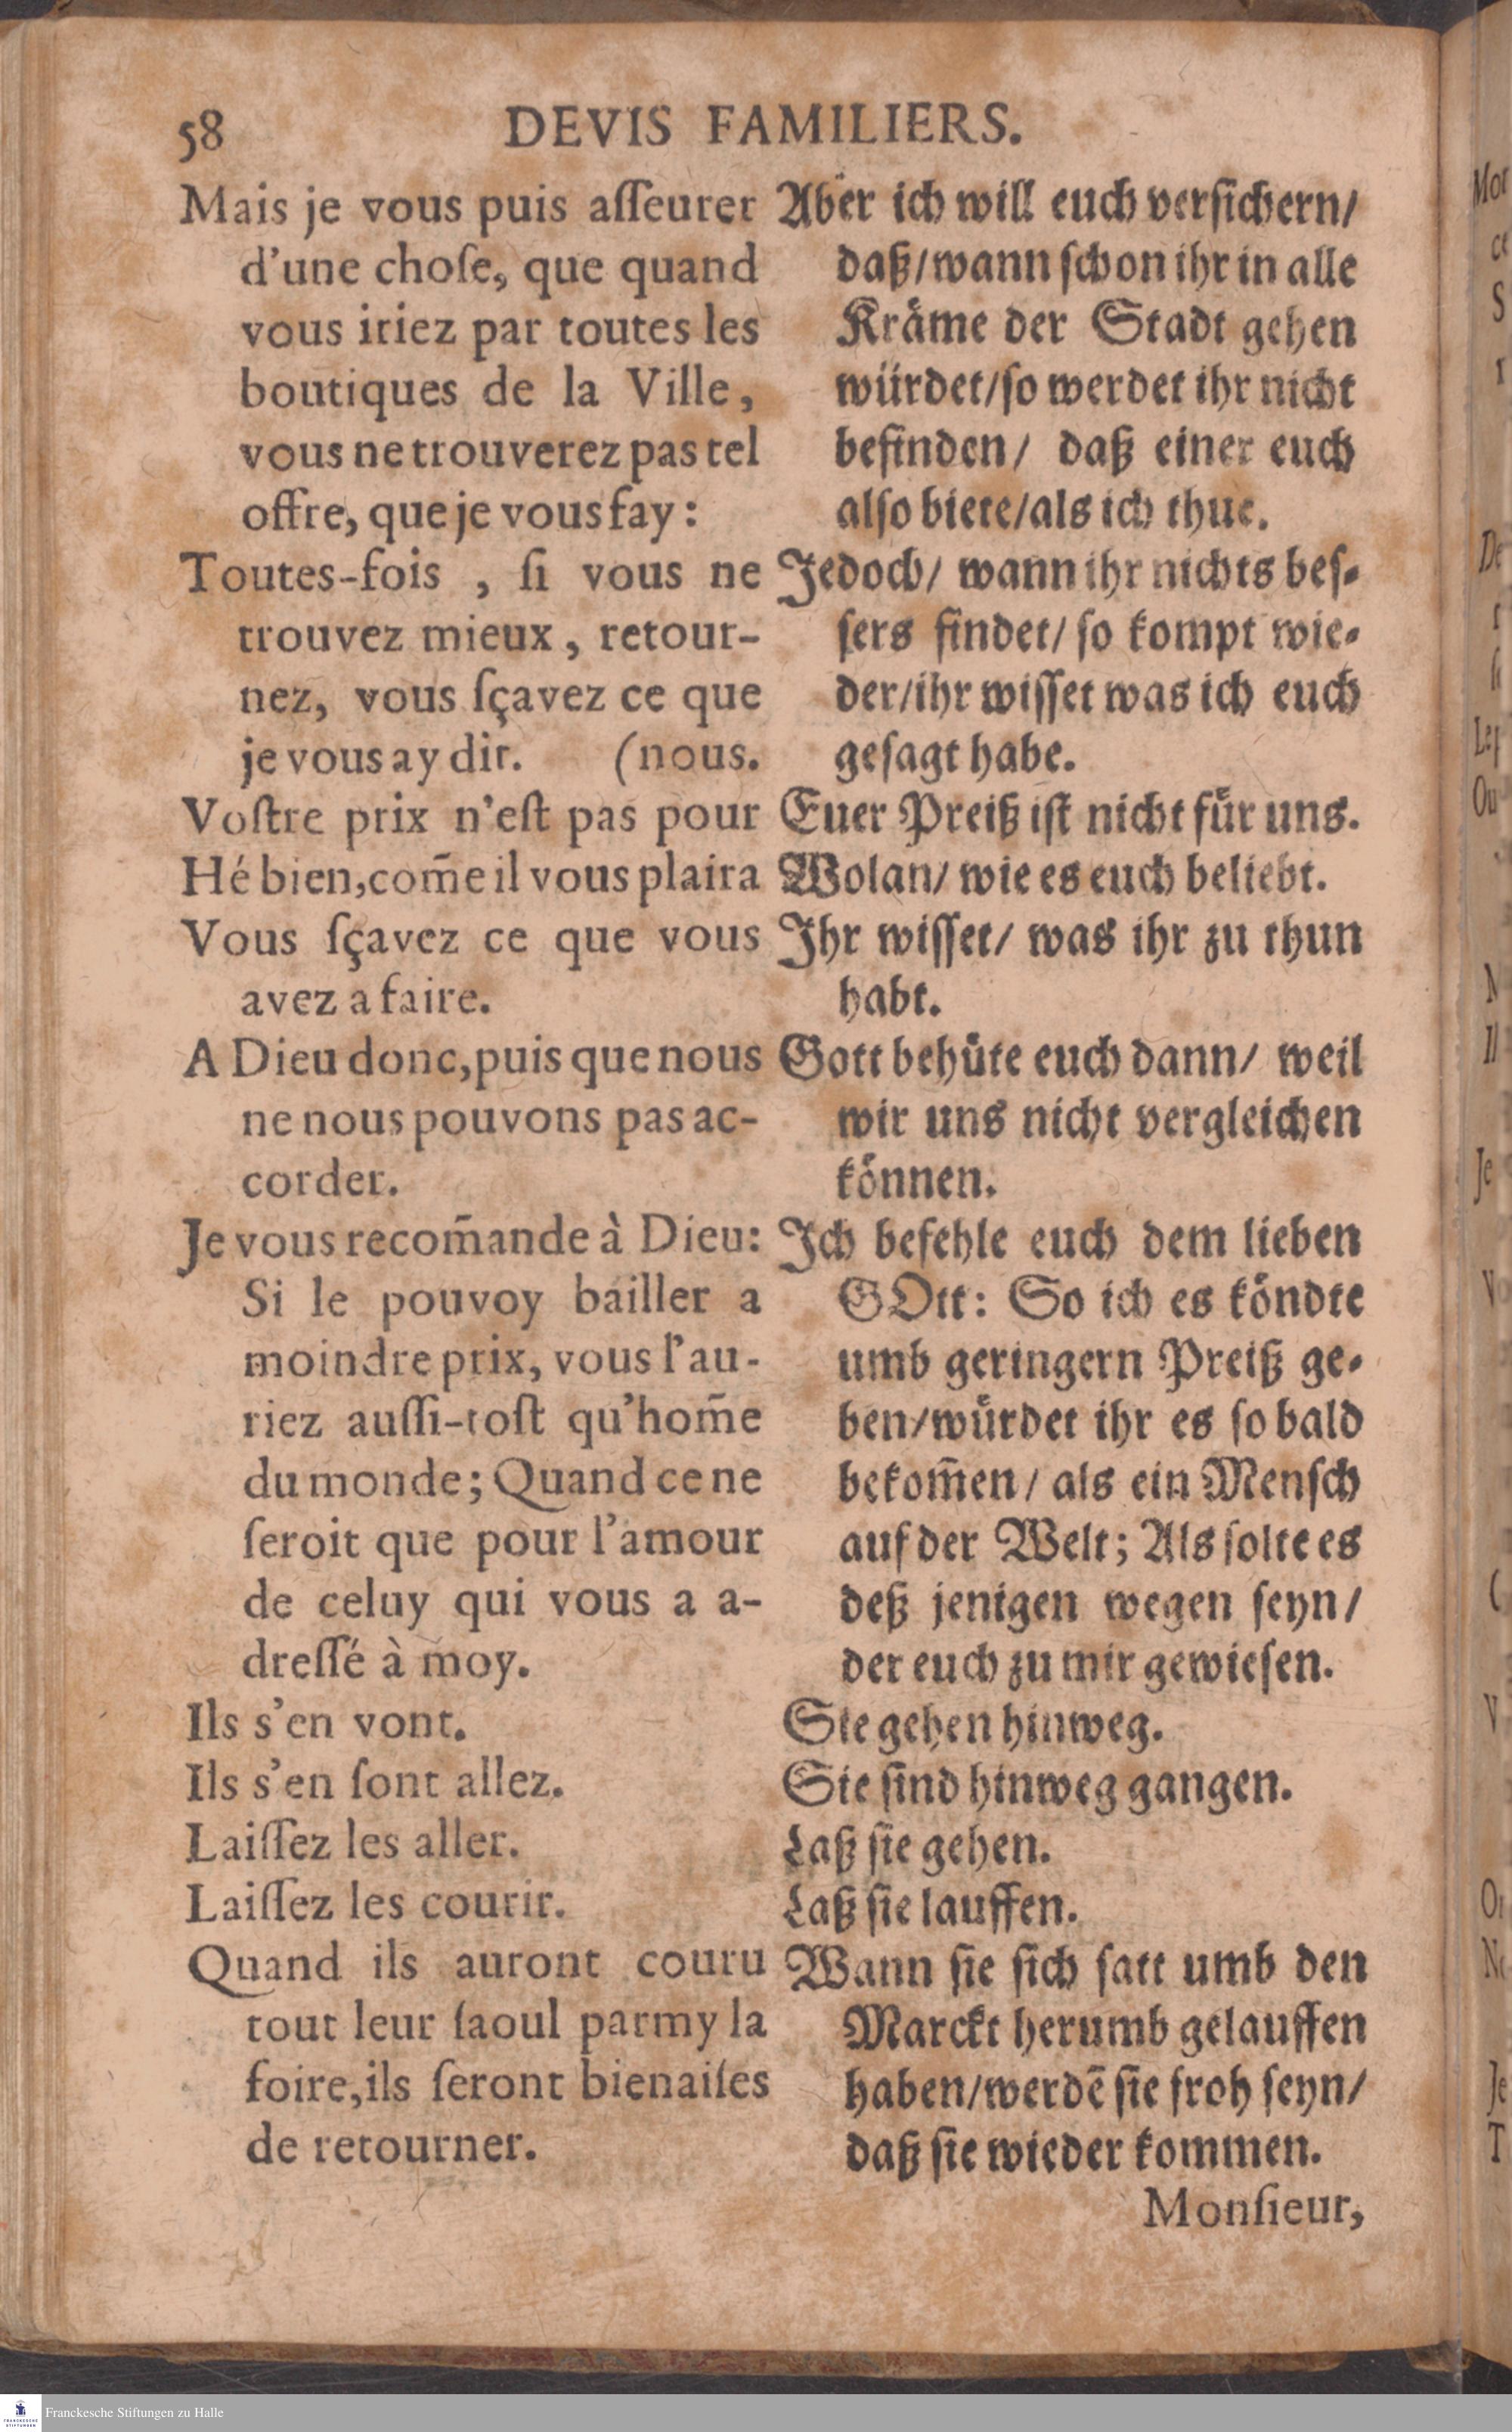 58 DEVIS FAMILIERS.
Mais je vous puis aſſeurer
d'une choſe, que quand
vous iriez par toutes les
boutiques de la Ville,
vous ne trouverez pas tel
offre, que je vous fay:
Toutes-fois , ſi vous ne
trouvez mieux, retour-
nez, vous ſçavez ce que
je vous ay dit. (nous.
Voſtre prix n'eſt pas pour
Hé bien, com̃e il vous plaira
Vous ſçavez ce que vous
avez a faire.
A Dieu donc, puis que nous
ne nous pouvons pas ac-
corder.
Je vous recom̃ande à Dieu:
Si le pouvoy bailler a
moindre prix, vous l'au-
riez auſſi-toſt qu'hom̃e
du monde; Quand ce ne
ſeroit que pour l'amour
de celuy qui vous a a-
dreſſé à moy.
Ils s'en vont.
Ils s'en ſont allez.
Laiſſez les aller.
Laiſſez les courir.
Quand ils auront couru
tout leur ſaoul parmy la
foire, ils ſeront bienaiſes
de retourner.
Aber ich will euch verſichern/
daß/ wann ſchon ihr in alle
Kräme der Stadt gehen
würdet/ ſo werdet ihr nicht
befinden/ daß einer euch
alſo biete/ als ich thue.
Jedoch/ wann ihr nichts beſ-
ſers findet/ ſo kompt wie-
der/ ihr wiſſet was ich euch
geſagt habe.
Euer Preiß iſt nicht für uns.
Wolan/ wie es euch beliebt.
Ihr wiſſet/ was ihr zu thun
habt.
Gott behüte euch dann/ weil
wir uns nicht vergleichen
können.
Ich befehle euch dem lieben
GOtt: So ich es köndte
umb geringern Preiß ge-
ben/ würdet ihr es ſo bald
bekom̃en/ als ein Menſch
auf der Welt; Als ſolte es
deß jenigen wegen ſeyn/
der euch zu mir gewieſen.
Sie gehen hinweg.
Sie ſind hinweg gangen.
Laß ſie gehen.
Laß ſie lauffen.
Wann ſie ſich ſatt umb den
Marckt herumb gelauffen
haben/ werdẽ ſie froh ſeyn/
daß ſie wieder kommen.
Monſieur,
Franckesche Stiftungen zu Halle